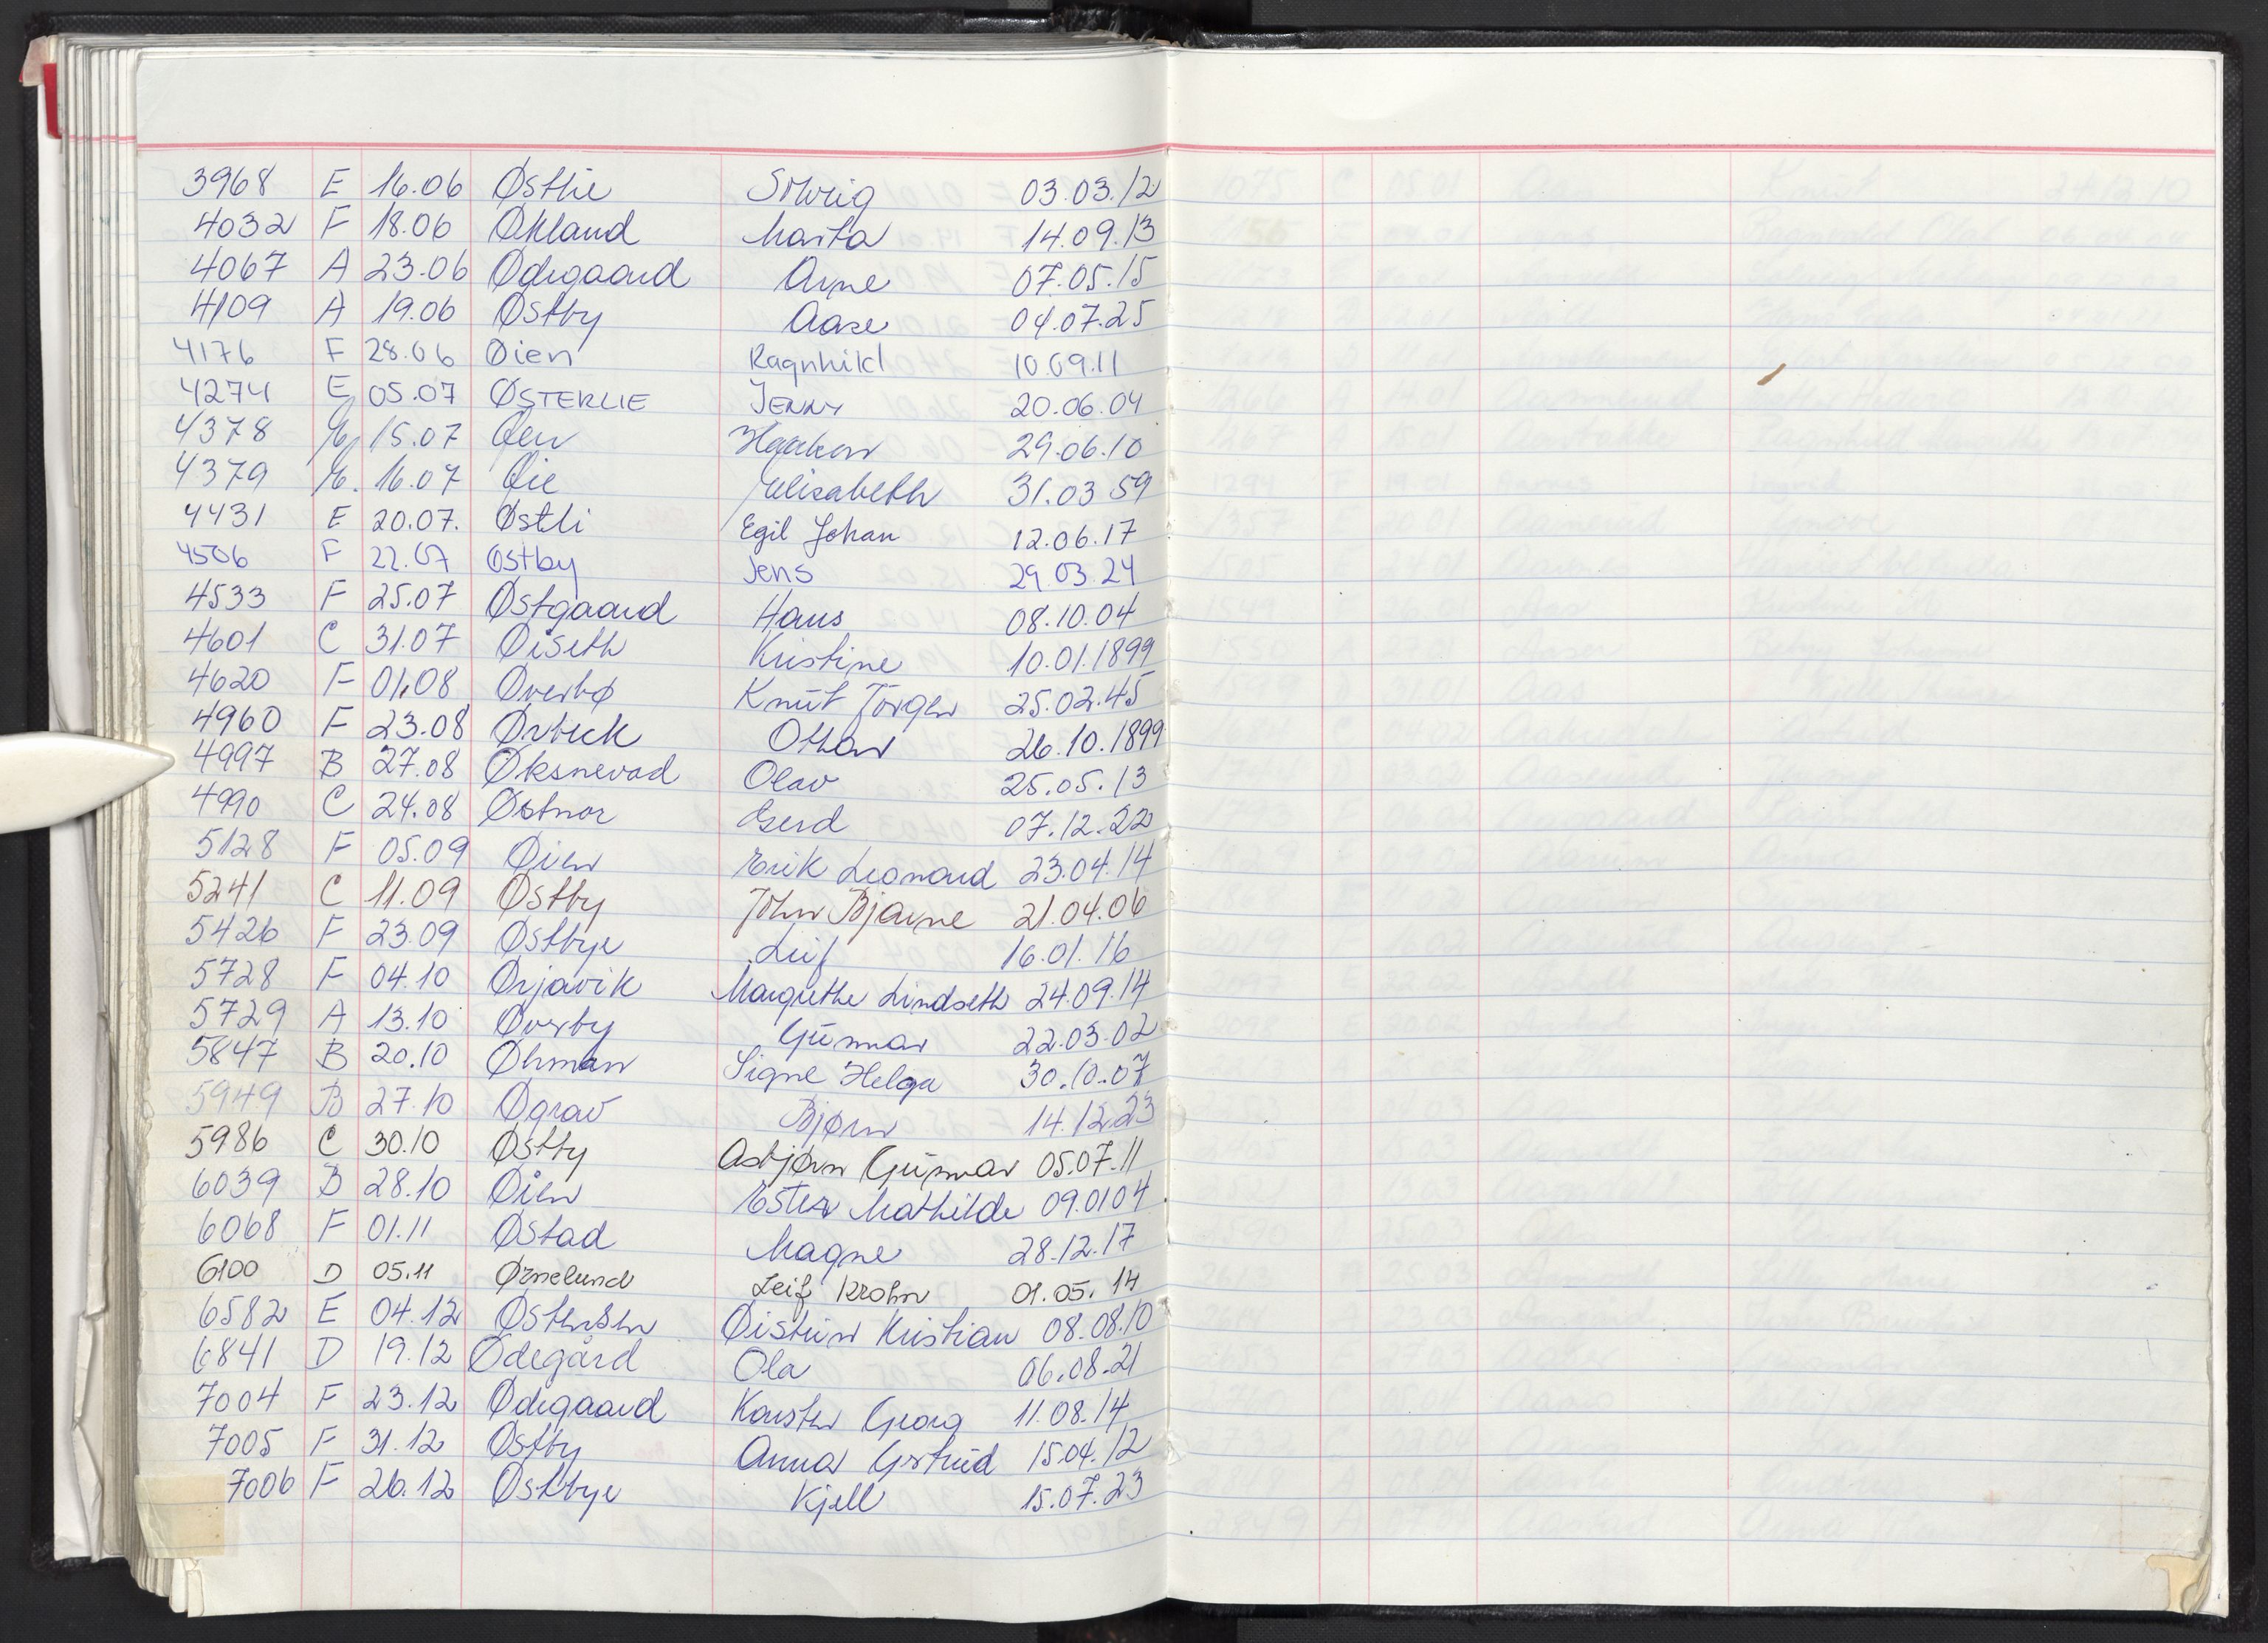 3968 E 16.06 Østlie Solveig 03.03.12
4032 F 18.06 Økland Marta 14.09.13
4067 A 23.06 Ødegaard Arne 07.05.15
4109 A 19.06 Østby Aase 04.07.25
4176 F 28.06 Øien Ragnhild 10.09.11
4274 E 05.07 ØSTERLIE JENNY 20.06.04
4378 E 15.07 Øen Haakon 29.06.10
4379 E. 16.07 Øie Elisabeth 31.03 59
4431 E 20.07. Østli Egil Johan 12.06.17
4506 F 22.07 Østby Jens 29.03.24
4533 F 25.07 Østgaard Hans 08.10.04
4601 C 31.07 Øiseth Kristine 10.01.1899
4620 F 01.08 Øverbø Knut Jörgen 25.02.45
4960 F 23.08 Ørbeck Othar 26.10.1899
4997 B 27.08 Øksnevad Olav 25.05.13
4990 C 24.08 Østnor Gerd 07.12.22
5128 F 05.09 Øien Erik Leonard 23.04.14
5241 C 11.09 Østby John Bjarne 21.04.06
5426 F 23.09 Østbye Leif 16.01.16
5728 F 04.10 Ørjavik Margrethe Lindseth 24.09.14
5729 A 13.10 Øverby Gunnar 22.03.02
5847 B 20.10 Øhman Signe Helga 30.10.07
5949 B 27.10 Øgrav Bjørn 14.12.23
5986 C 30.10 Østby Asbjørn Gunnar 05.07.11
6039 B 28.10 Øien Ester Mathilde 09.01 04
6068 F 01.11 Østad Magne 28.12.17
6100 D 05.11 Ørnelund Leif Krohn 01.05.14
6582 E 04.12 Østensen Øistein Kristian 08.08.10
6841 D 19.12 Ødegård Ola 06.08.21
7004 F 23.12 Ødegaard Karsten Georg 11.08.14
7005 F 31.12 Østby Anna Gertrud 15.04.12
7006 F 26.12 Østbye Kjell 15.07.23